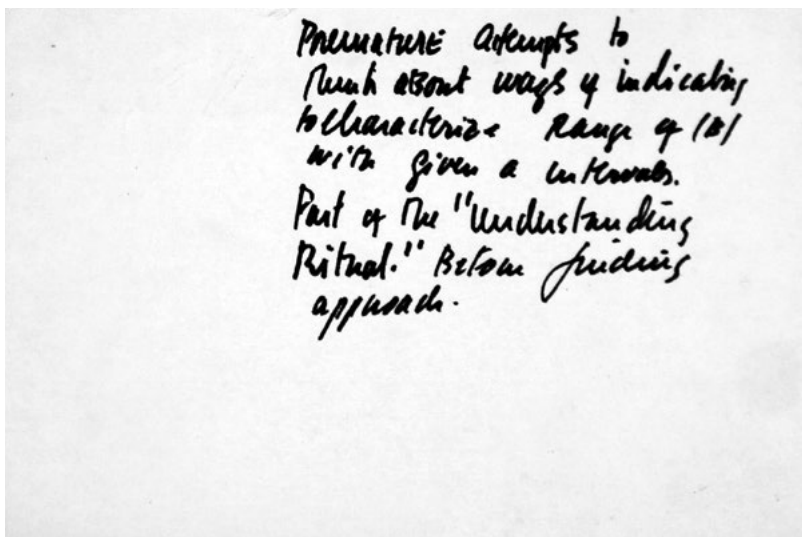 Premature attempts to
think about ways of indicating
to characterize range of |B|
with given a intervals.
Part of the "Understanding
Ritual." Before finding
approach.